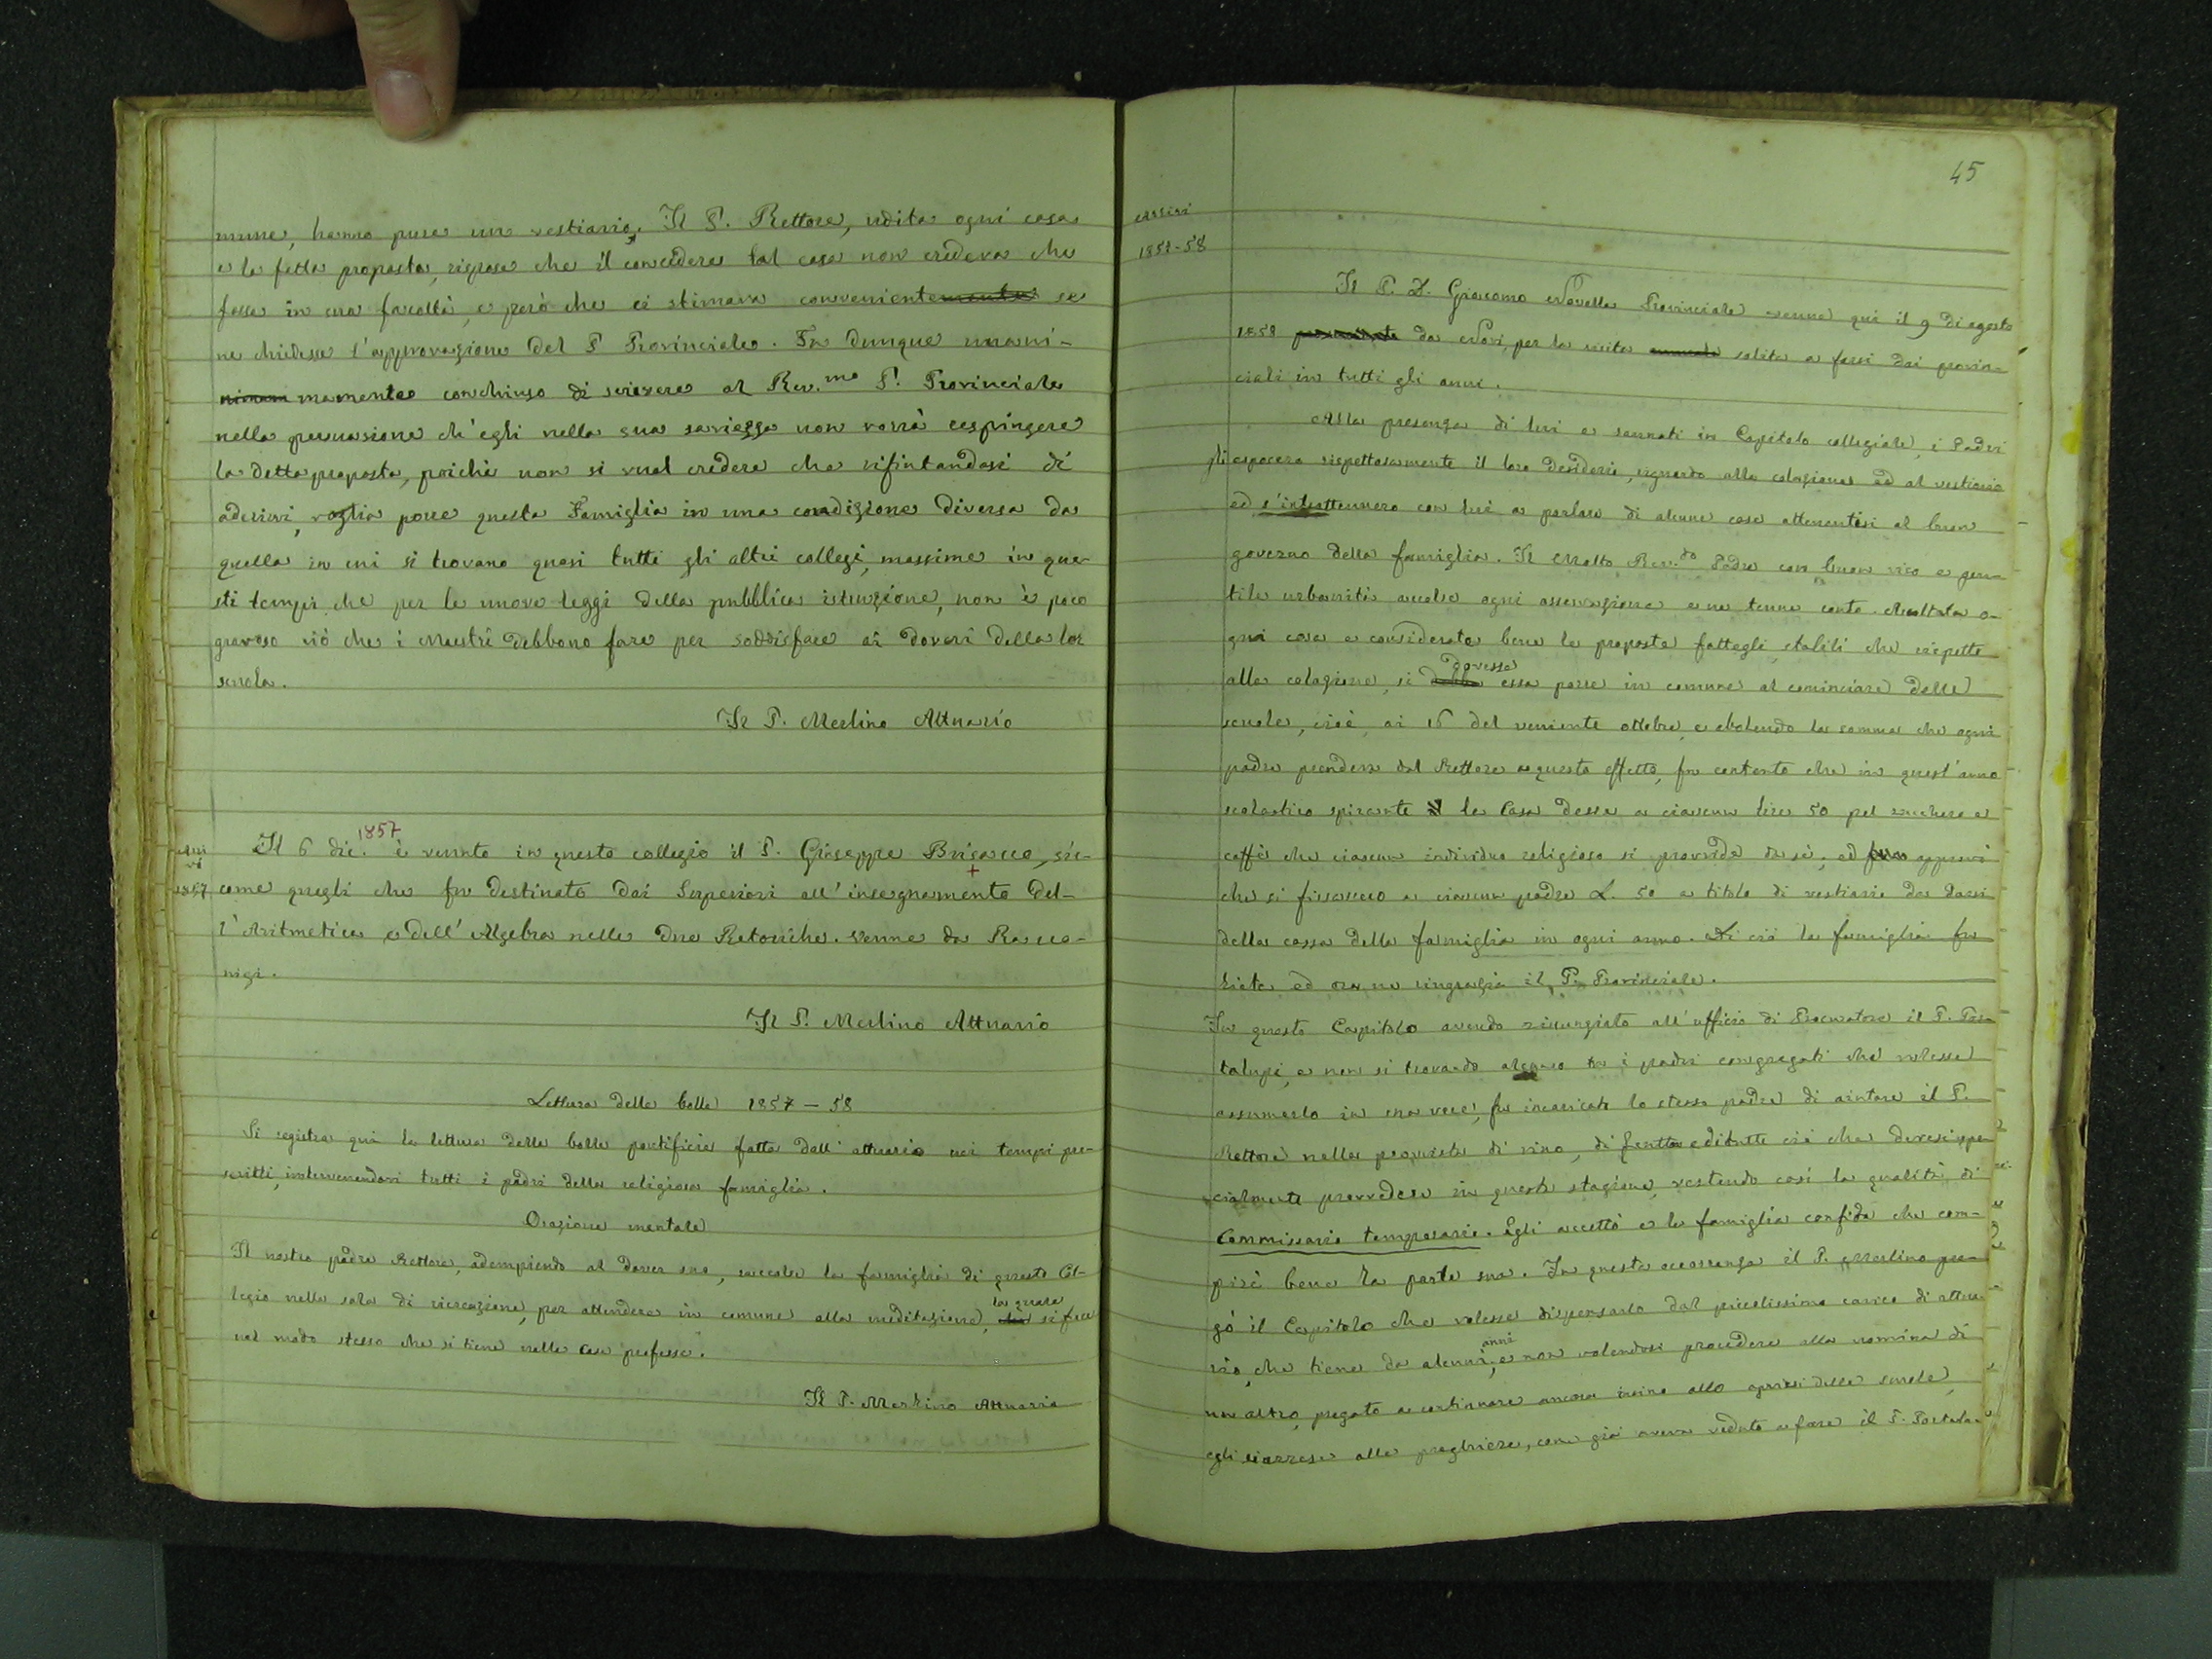 mune, hanno pure un vestiario. Il P. Rettore, udita ogni cosa
e la fatta proposta, rispose che il concedere tal cosa non credeva che
fosse in sua facoltà, e però che ei stimava conveniente se
ne chiedesse l'approvazione del P. Provinciale. Fu dunque unani-
mamente conchiuso di scrivere al Rev.mo P. Provinciale
nella persuasione ch'egli nella sua saviezza non vorrà respingere
la detta proposta, poichè non si vuol credere che rifiutandosi di
aderirvi, voglia porre questa Famiglia in una condizione diversa da
quella in cui si trovano quasi tutti gli altri collegi, massime in que-
sti tempi che per le nuove leggi della pubblica istruzione, non è poco
gravoso ciò che i Maestri debbono fare per soddisfare ai doveri della lor
scuola.
Il P. Merlino Attuario
Arri
vi
1857
Il 6 dic. 1857 è venuto in questo collegio il P. Giuseppe Brisacco, sic-
come quegli che fu destinato dai Superiori all'insegnamento del-
l'Aritmetica e dell'Algebra nelle due Retoriche. Venne da Racco-
nigi.
Il P. Merlino Attuario
Lettura delle bolle 1857 – 58
Si registra qui la lettura delle bolle pontificie fatta dall'attuario nei tempi pre-
scritti, intervenendovi tutti i padri della religiosa famiglia.
Orazione mentale
Il nostro padre Rettore, adempiendo al dover suo, raccolse la famiglia di questo Col-
legio nella sala di ricreazione, per attendere in comune alla meditazione, la quale si fece
nel modo stesso che si tiene nelle case professe.
Il P. Merlino Attuario
45
Arrivi
1857-58
Il P. D. Giacomo Novella Provinciale venne qui il 9 di agosto
1858 da Novi, per la visita solita a farsi dai provin-
ciali in tutti gli anni.
Alla presenza di lui e raunati in Capitolo collegiale, i Padri
gli esposero rispettosamente il loro desiderio, riguardo alla colazione ed al vestiario
ed s'intrattennero con lui a parlare di alcune cose attenentisi al buon
governo della famiglia. Il Molto Rev.do Padre con buon viso e gen-
tile urbanità accolse ogni osservazione e ne tenne conto. Ascoltata o-
gni cosa e considerata bene la proposta fattagli, stabilì che rispetto
alla colazione, si dovesse essa porre in comune al cominciare delle
scuole, cioè, ai 16 del veniente ottobre, e abolendo la somma che ogni
padre prendeva dal Rettore a questo effetto, fu contento che in quest'anno
scolastico spirante la Casa desse a ciascun lire 50 pel zucchero e
caffè che ciascun individuo religioso si provvide da sè; ed approvò
che si fissassero a ciascun padre L. 50 a titolo di vestiario da darsi
dalla cassa della famiglia in ogni anno. Di ciò la famiglia fu
lieta ed ora ne ringrazia il P. Provinciale.
In questo Capitolo avendo rinunziato all'ufficio di Procuratore il P. Por-
talupi, e non si trovando alcuno tra i padri congregati che volesse
assumerlo in sua vece, fu incaricato lo stesso padre di aiutare il P.
Rettore nella provvista di vino, di frutta e di tutto ciò che devesi spe-
cialmente provvedere in questa stagione, vestendo così la qualità di
Commissario temporario. Egli accettò e la famiglia confida che com-
pirà bene la parte sua. In questa occorrenza il P. Merlino pre-
gò il Capitolo che volesse dispensarlo dal piccolissimo carico di attua-
rio, che tiene da alcuni anni, e non volendosi procedere alla nomina di
un altro, pregato a continuare ancora insino allo aprirsi delle scuole,
egli si arrese alle preghiere, come già aveva veduto a fare il P. Portalu-